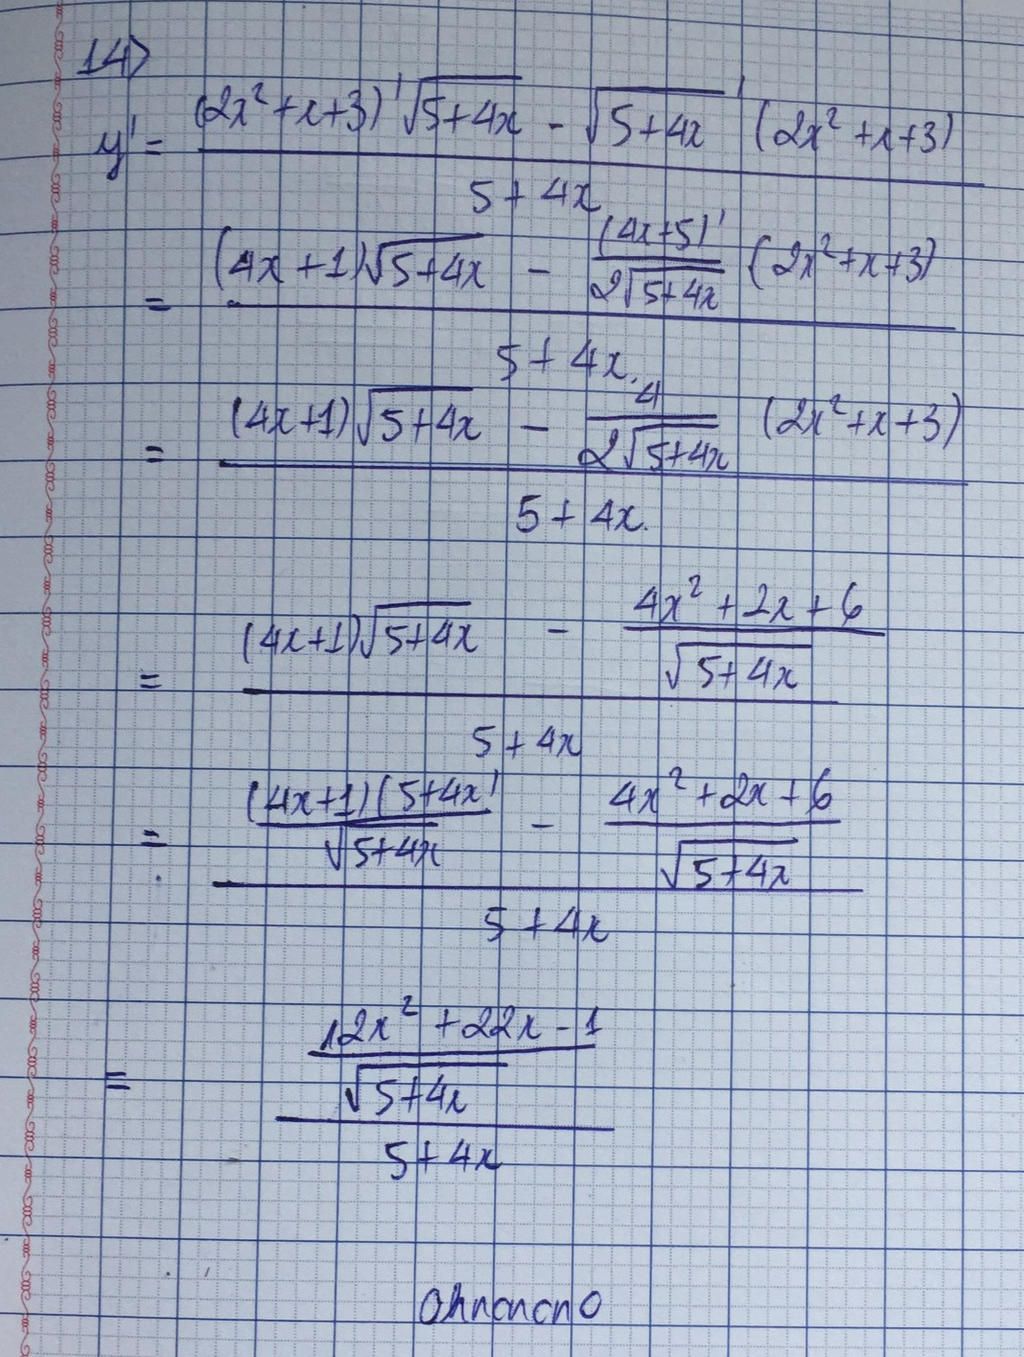 14>
y' = (2x² + x + 3)' √(5+4x) - √(5+4x)' (2x² + x + 3)
5 + 4x
= (4x + 1)√(5+4x) - (4x+5)' / 2√(5+4x) (2x² + x + 3)
5 + 4x.
= (4x+1)√(5+4x) - 4 / 2√(5+4x) (2x² + x + 3)
5 + 4x.
= (4x+1)√(5+4x) - 4x² + 2x + 6 / √(5+4x)
5 + 4x
= (4x+1)(5+4x) / √(5+4x) - 4x² + 2x + 6 / √(5+4x)
5 + 4x
= 12x² + 22x - 1
√(5+4x)
5 + 4x